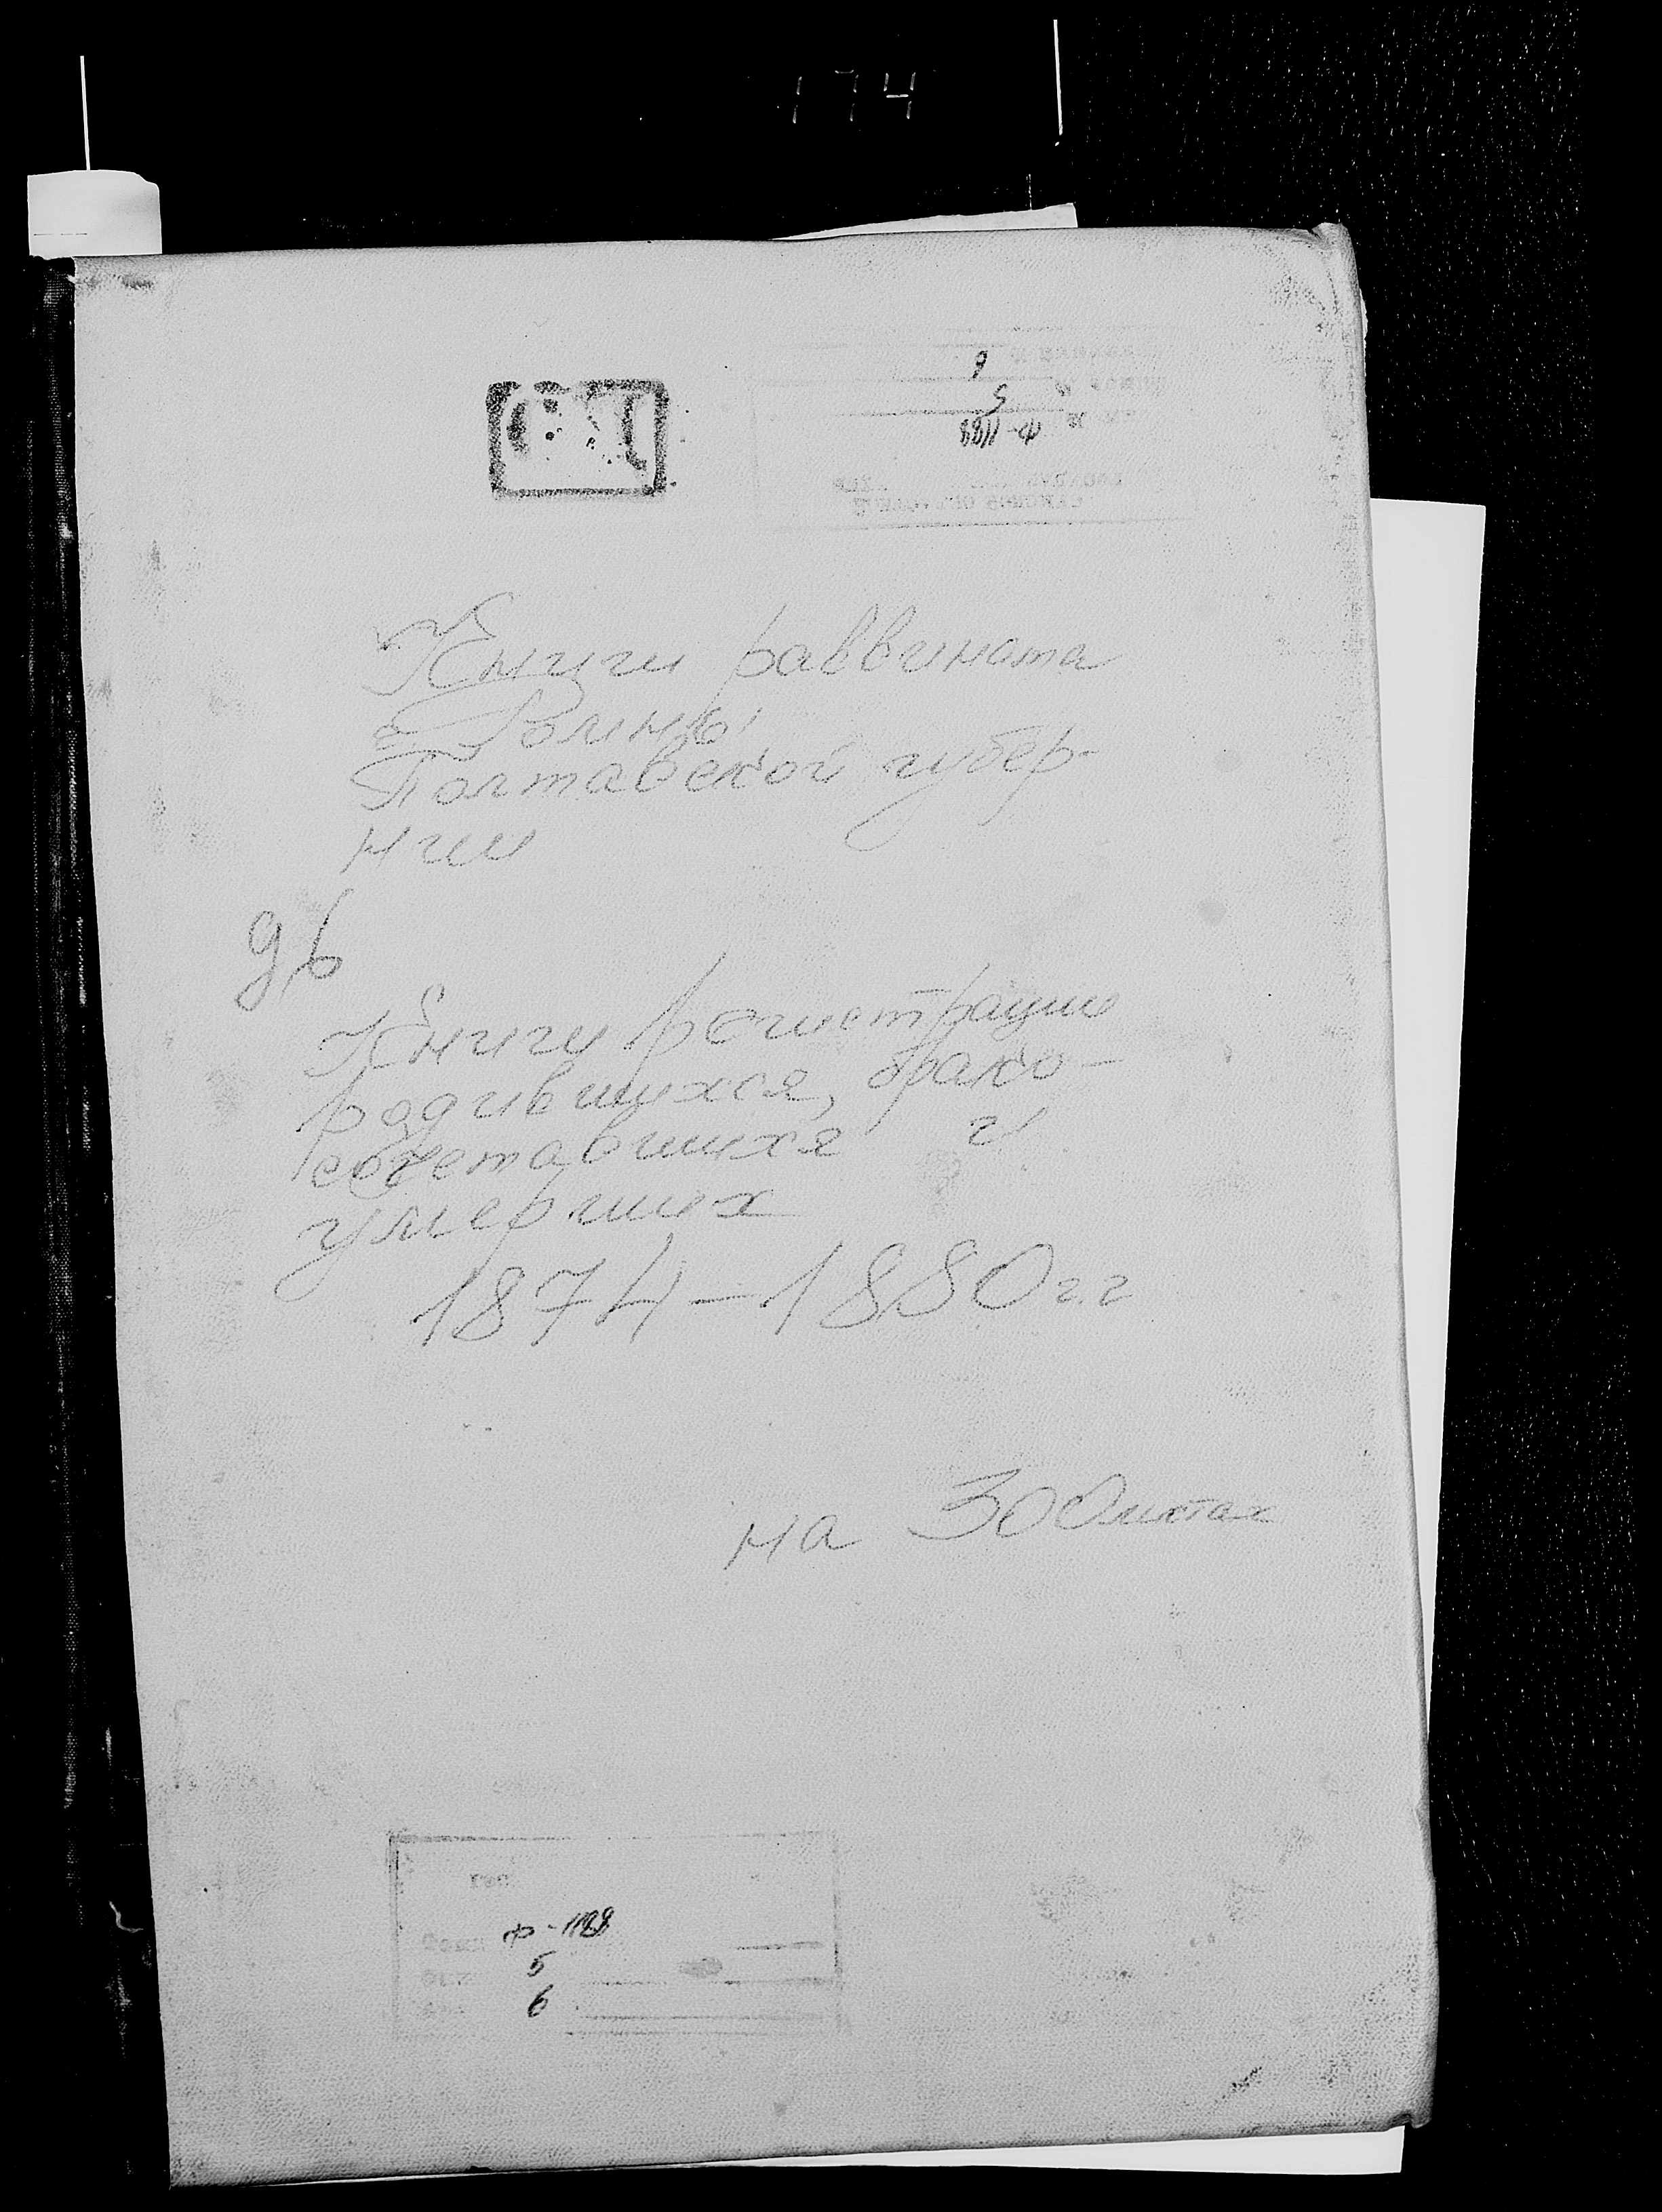 174
6
5
Ф-1199
Книги раввината
г. Ромны
Полтавской губер-
нии
д 6
Книги регистрации
родившихся, брако-
сочетавшихся и
умерших
1874-1880 г.г
на 300 листах
Ф-1199
5
6